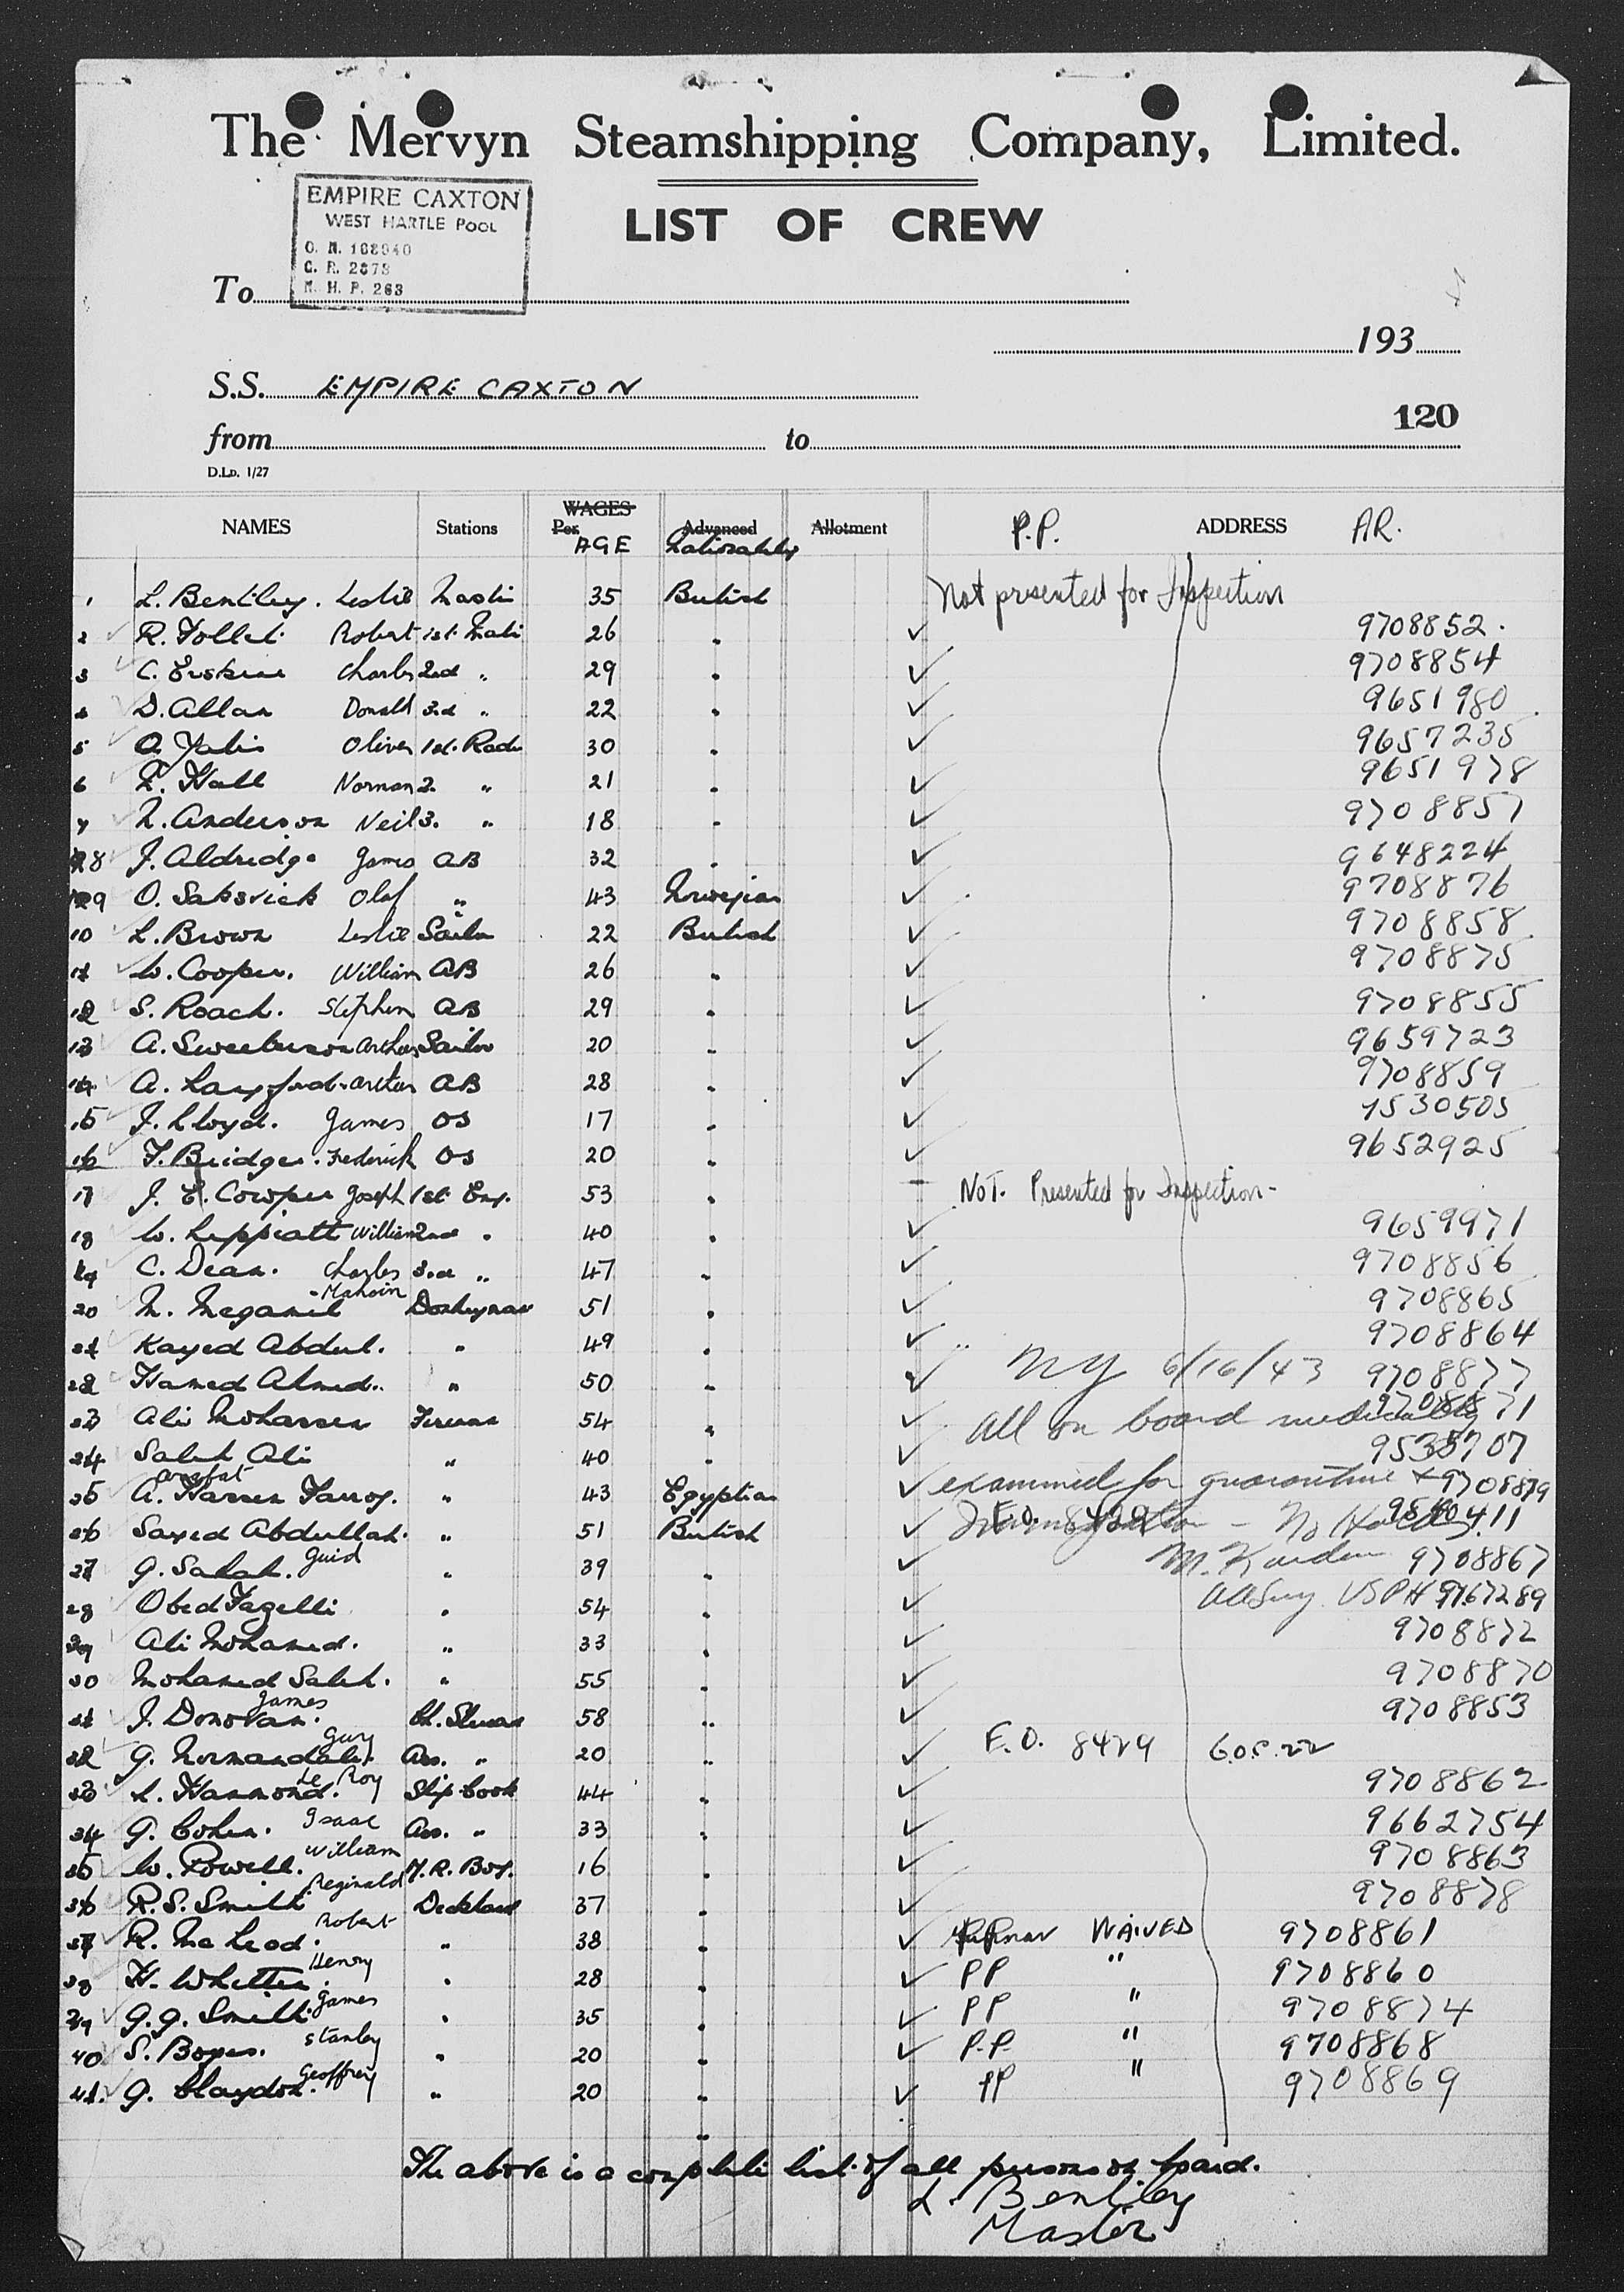 The Mervyn Steamshipping Company, Limited.
EMPIRE CAXTON
WEST HARTLE POOL
O. N. 168940
G. R. 2873
N. H. P. 263
LIST OF CREW
To
193
S.S. EMPIRE CAXTON
120
from to
D.LD. 1/27
NAMES Stations WAGES Per AGE Advanced Nationality Allotment P.P. ADDRESS AR.
1 L. Bentley. Leslie Master 35 British Not presented for Inspection
2 R. Follet. Robert 1st. Mate 26 " ✓ 9708852.
3 C. Erskine Charles 2nd " 29 " ✓ 9708854
4 D. Allan Donald 3rd " 22 " ✓ 9651980
5 O. Oliver 1st. Radio 30 " ✓ 9657235
6 Hall Norman 2. " 21 " ✓ 9651978
7 N. Anderson Neil 3. " 18 " ✓ 9708857
8 J. Aldridge James AB 32 " ✓ 9648224
9 O. Saksvick Olaf " 43 Norwegian ✓ 9708876
10 L. Brown Leslie Sailor 22 British ✓ 9708858
11 W. Cooper. William AB 26 " ✓ 9708875
12 S. Roach. Stephen AB 29 " ✓ 9708855
13 A. Arthur Sailor 20 " ✓ 9659723
14 A. Langford. Arthur AB 28 " ✓ 9708859
15 J. Lloyd. James OS 17 " ✓ 1530505
16 F. Bridger. Frederick OS 20 " ✓ 9652925
17 J. E. Cowper Joseph 1st Eng. 53 " – NOT. Presented for Inspection -
18 W. Leppiatt William 2nd " 40 " ✓ 9659971
19 C. Dean. Charles 3rd " 47 " ✓ 9708856
20 M. Megamil Donkeyman 51 " ✓ 9708865
21 Kayed Abdul. " 49 " ✓ 9708864
22 Hamed Ahmed. " 50 " ✓ NY 6/16/43 9708877
23 Ali Mohamed Fireman 54 " ✓ All on board medically 9708871
24 Saleh Ali " 40 " ✓ 9535707
25 A. Arafat Hassen Farrog. " 43 Egyptian ✓ examined for quarantine + 9708879
26 Sayed Abdullah. " 51 British ✓ Immigration - No 411
27 G. Salah. Guid " 39 " ✓ 9708867
28 Obed Fazelli " 54 " ✓ USPH 9767289
29 Ali Mohamed. " 33 " ✓ 9708872
30 Mohamed Saleh. " 55 " ✓ 9708870
31 J. Donovan. James Ch. Steward 58 " ✓ 9708853
32 G. Normandale. Guy Ass. " 20 " ✓ E.O. 8429 6.0.5.22
33 L. Hammond. Le Roy Ship Cook 44 " ✓ 9708862
34 G. Cohen. Isaac Ass. " 33 " ✓ 9662754
35 W. Powell. William M.R. Boy. 16 " ✓ 9708863
36 R. S. Smith Reginald Deckhand 37 " ✓ 9708878
37 R. McLeod. Robert " 38 " ✓ WAIVED 9708861
38 H. Henry " 28 " ✓ PP " 9708860
39 G. G. Smith. James " 35 " ✓ PP " 9708874
40 S. Boyes. Stanley " 20 " ✓ P.P. " 9708868
41. G. Claydon. Geoffrey " 20 " ✓ PP " 9708869
The above is a complete list of all persons on board.
L. Bentley
Master